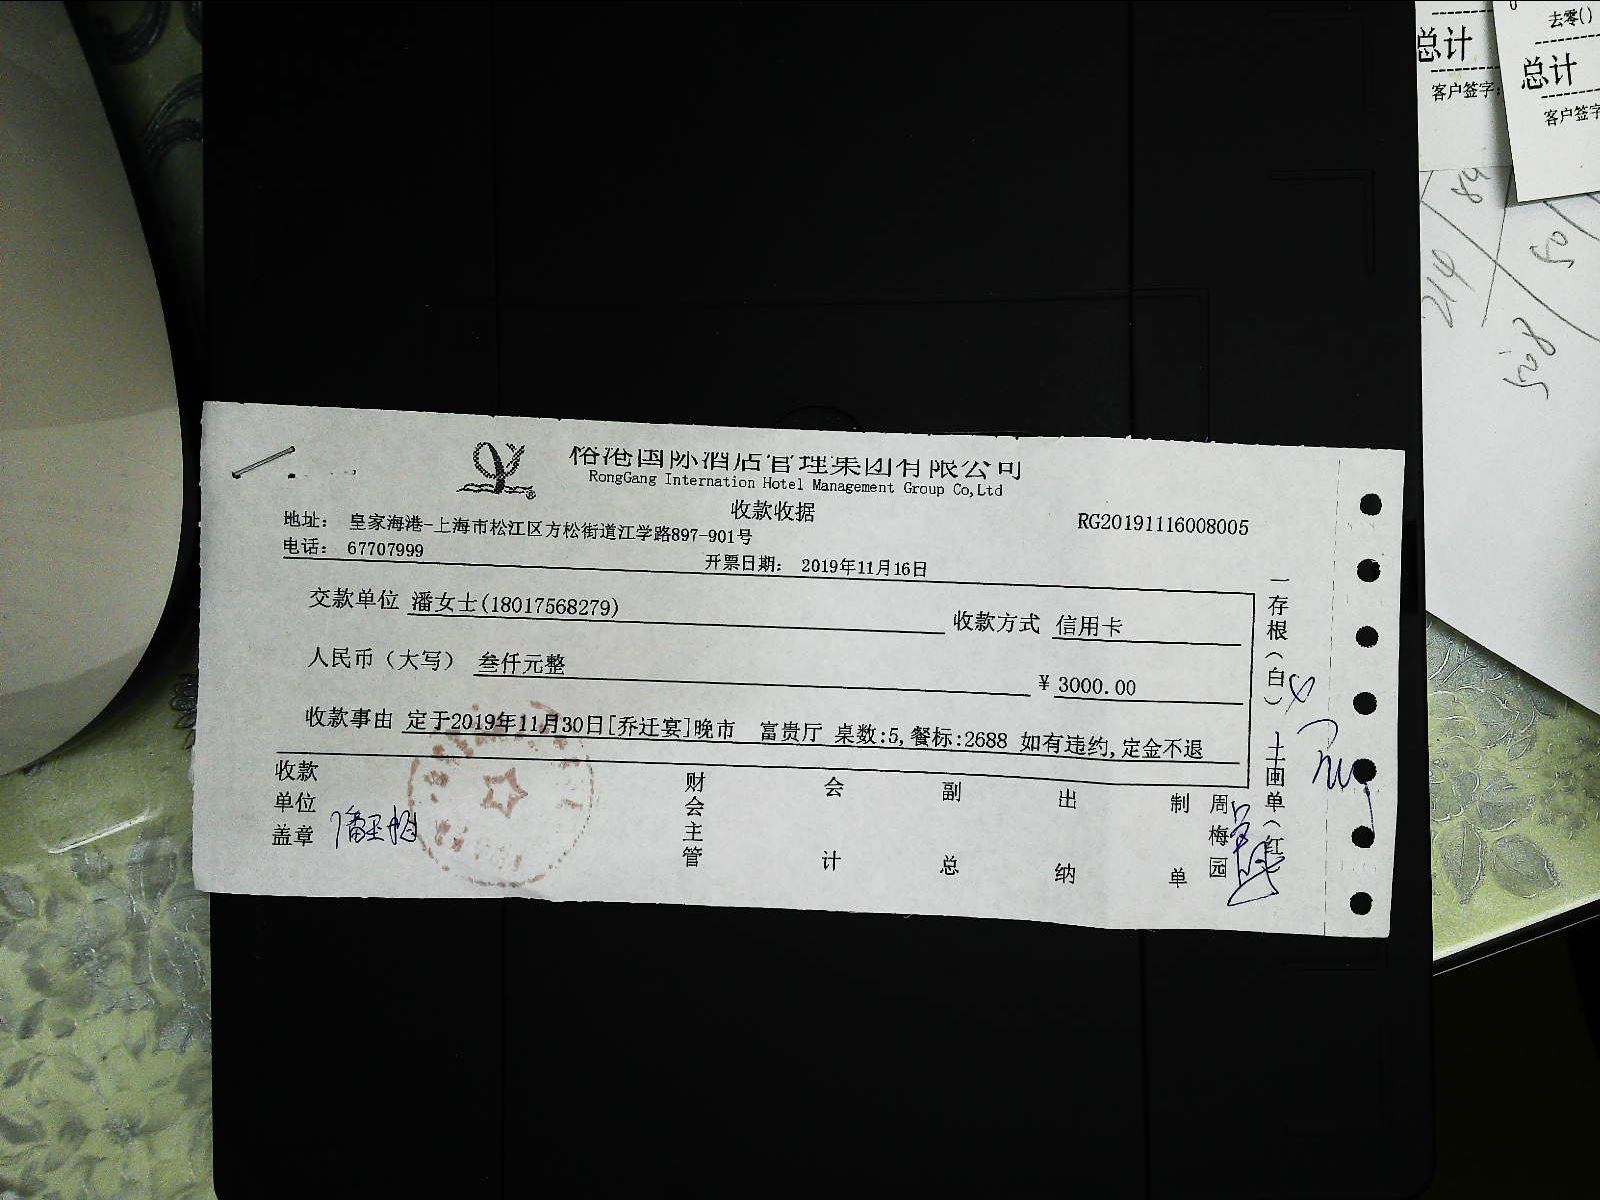 榕港国际酒店管理集团有限公司
RongGang Internation Hotel Management Group Co,Ltd
收款收据
地址： 皇家海港-上海市松江区方松街道江学路897-901号
RG20191116008005
电话： 67707999
开票日期： 2019年11月16日
交款单位 潘女士(18017568279)
收款方式 信用卡
人民币（大写） 叁仟元整
¥ 3000.00
收款事由 定于2019年11月30日[乔迁宴]晚市 富贵厅 桌数:5,餐标:2688 如有违约,定金不退
收款单位盖章
财会主管
会计
副总
出纳
制单
周梅园
一存根（白）
单（红
总计
客户签字:
去零()
总计
客户签字
214
84
50